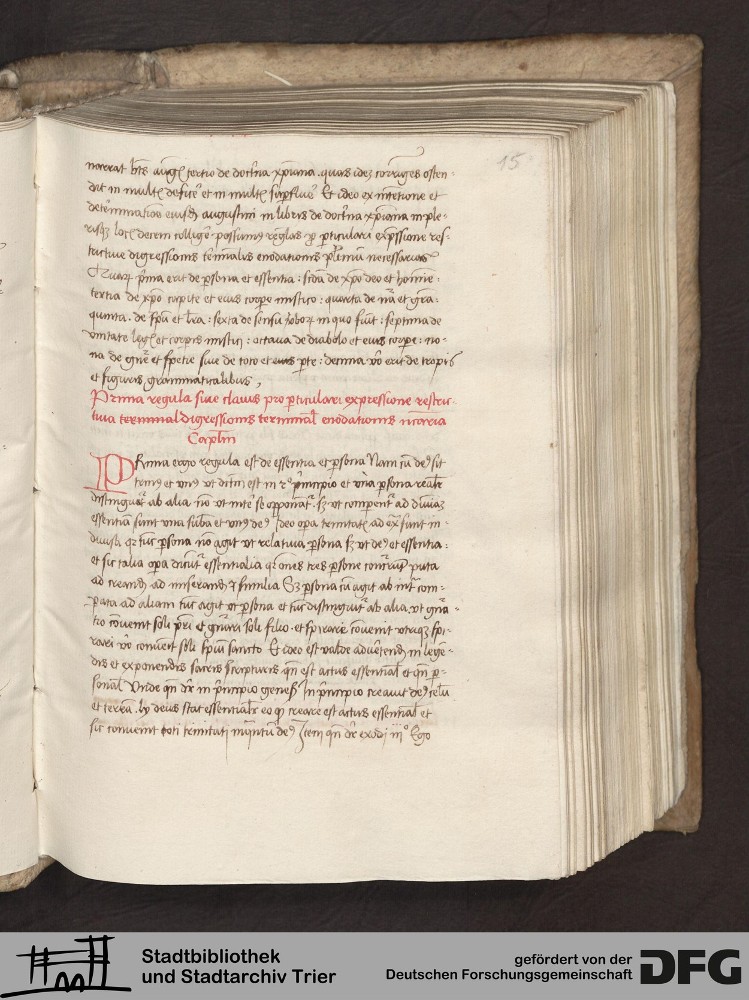 15
narrat bts aug9 tertio de doctrina xpiana . quas idez corriges osten-
dit in mult deficere et in mult superflue Et ideo ex intentione et
determinatione eiusdem augustini in libris de doctrina xpiana in ple-
risqz locis decem colligere possumus reglas p particulari expressione res-
trictiue digressionis terminalis enodationis plurimum necessarias
Quarum prima erit de persona et essentia : scda de xpo deo et homine :
tertia de xpo capite et eius corpore mistico : quarta de na et gra :
quinta . de spu et lra : sexta de sensu verborum in quo fiunt : septima de
vnitate legis et corporis mistici : octaua de diabolo et eius corpore : no-
na de gne et spetie siue de toto et eius parte : decima vo erit de tropis
et figuris grammaticalibus ,
Prima regula siue clauis pro particulari expressione restric-
tiua terminal digressionis terminal enodationis necessaria
Caplm
Prima ergo regula est de essentia et persona Nam cu deus sit
trinus et vnus vt dictum est in principio et vna persona realiter
distinguatur ab alia no vt inter se opponantur . sz vt comparentur ad diuinam
essentiam sunt vna suba et vnus deus Ideo opa trinitatis ad extra sunt in-
diuisa qr tunc persona no agit vt relatiua persona sz vt deus et essentia :
et sic talia opa dicuntur essentialia qr omnes tres persone puta
ad creandum ad miserandum et similia Sz persona cu agit ab intra com-
parata ad aliam tunc agit vt persona et tunc distinguitur ab alia . vt gnra-
tio conuenit soli patri et gnrari soli filio . et spirare conuenit vtriqz spi-
rari vo conuenit soli spiritui sancto Et ideo est valde aduertendum in legen-
dis et exponendis sacris scripturis qn est actus essential et qn per-
sonal Vnde qn dr in principio genesis In principio creauit deus celu
et terram . ly deus stat essentialiter eo q creare est actus essential et
sic conuenit toti trinitati inquantum deus Item qn dr exodi iij° Ego
Stadtbibliothek
und Stadtarchiv Trier
gefördert von der
Deutschen Forschungsgemeinschaft
DFG